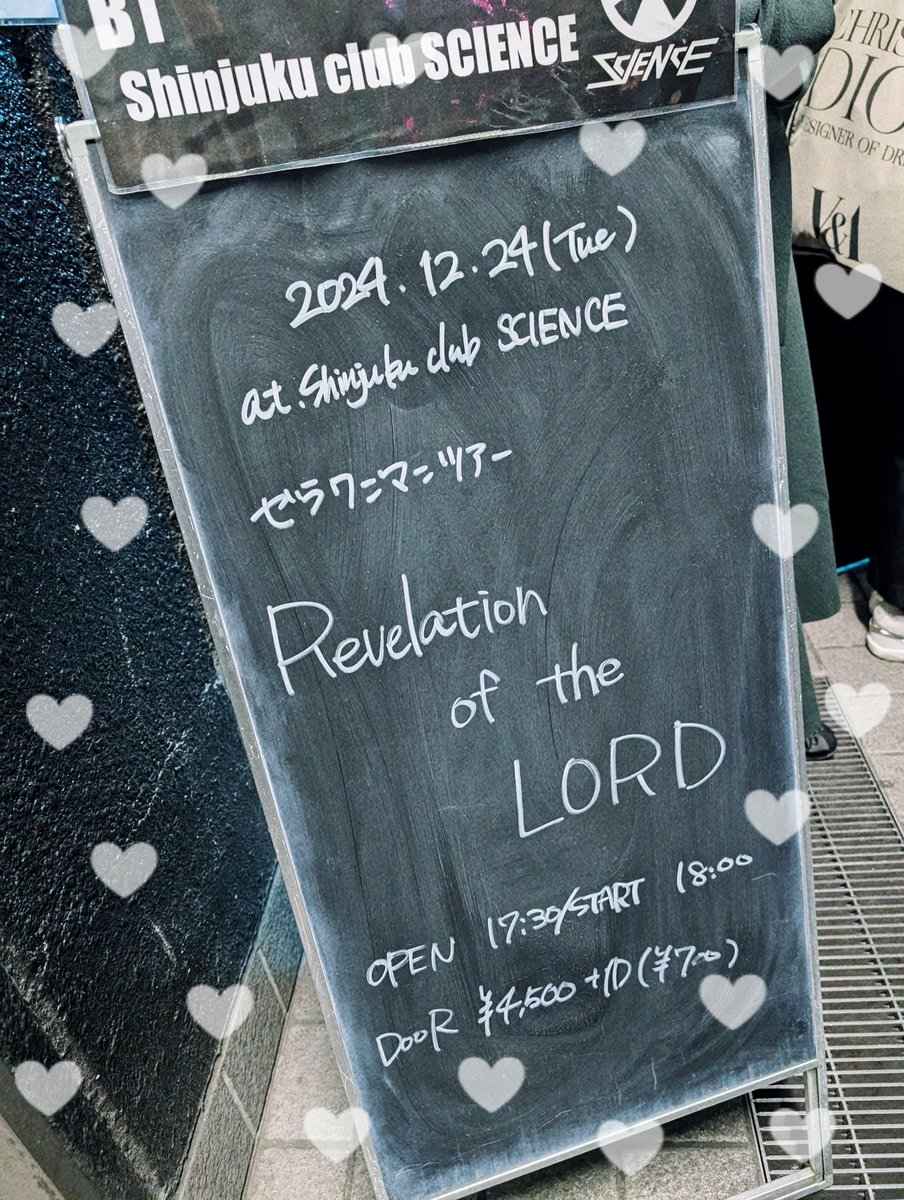 B1
Shinjuku club SCIENCE
SCIENCE
CHRIS
DIO
ESIGNER OF DR
V&A
2024.12.24(Tue)
at.Shinjuku club SCIENCE
ゼラ ワンマンツアー
Revelation
of the
LORD
OPEN 17:30/START 18:00
DOOR ¥4,500+1D(¥700)